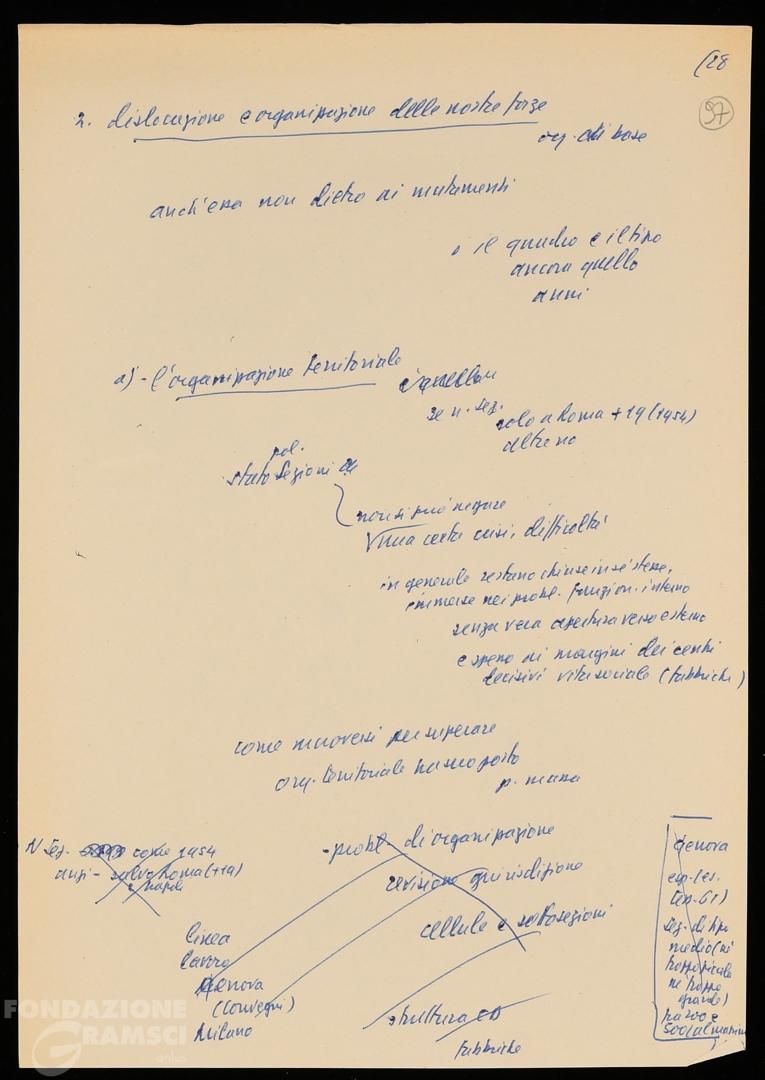 (28
97
2. dislocazione e organizzazione delle nostre forze
org. di base
anch'essa non dietro ai mutamenti
il quadro e il tipo
ancora quello
anni
a) - l'organizzazione territoriale
se n. sez.
solo a Roma + 19 (1954)
altre no
pol.
stato Sezioni
non si può negare
una certa crisi, difficoltà
in generale restano chiuse in sé stesse,
immerse nei probl. funzion. interno
senza vera apertura verso esterno
e spesso ai margini dei centri
decisivi vita sociale (fabbriche)
come muoversi per superare
org. territoriale nasce posto
p. massa
N Sez. come 1954
anzi - salvo Roma (+19)
e Napoli
- probl. di organizzazione
revisione giurisdizione
cellule e sottosezioni
linea
lavoro
Genova
(convegni)
Milano
struttura CD
fabbriche
Genova
sez. di tipo
medio (né
troppo piccola
né troppo
grande)
FONDAZIONE
GRAMSCI
onlus